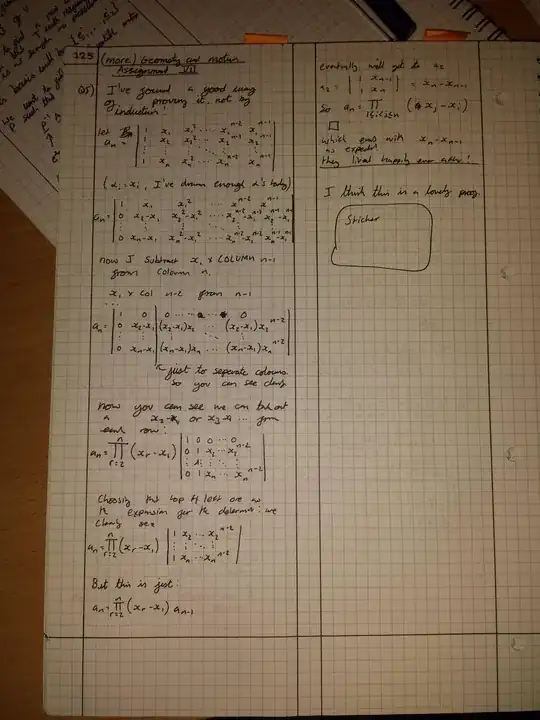 225
(more) Geometry and motion
Assignment VII
Q5) I've found a good way
of proving it, not by
induction:
let a_n = | 1 x_1 x_1^2 ... x_1^{n-2} x_1^{n-1} |
| 1 x_2 x_2^2 ... x_2^{n-2} x_2^{n-1} |
| 1 x_n x_n^2 ... x_n^{n-2} x_n^{n-1} |
(α_i = x_i, I've drawn enough α's today)
a_n = | 1 x_1 x_1^2 ... x_1^{n-2} x_1^{n-1} |
| 0 x_2-x_1 x_2^2-x_1^2 ... x_2^{n-2}-x_1^{n-2} x_2^{n-1}-x_1^{n-1} |
| 0 x_n-x_1 x_n^2-x_1^2 ... x_n^{n-2}-x_1^{n-2} x_n^{n-1}-x_1^{n-1} |
now I subtract x_1 × COLUMN n-1
from column n.
x_1 × col n-2 from n-1
a_n = | 1 0 | 0 ... 0 |
| 0 x_2-x_1 | (x_2-x_1)x_2 ... (x_2-x_1)x_2^{n-2} |
| 0 x_n-x_1 | (x_n-x_1)x_n ... (x_n-x_1)x_n^{n-2} |
↖ just to separate columns
so you can see clearly
now you can see we can take out
a x_2-x_1 or x_3-x_1 ... from
each row:
a_n = ∏_{r=2}^{n} (x_r-x_1) | 1 0 0 ... 0 |
| 0 1 x_2 ... x_2^{n-2} |
| 0 1 x_n ... x_n^{n-2} |
Choosing the top left one as
the expansion for the determinant we
clearly see
a_n = ∏_{r=2}^{n} (x_r-x_1) | 1 x_2 ... x_2^{n-2} |
| 1 x_n ... x_n^{n-2} |
But this is just:
a_n = ∏_{r=2}^{n} (x_r-x_1) a_{n-1}
eventually will get to a_2
a_2 = | 1 x_{n-1} |
| 1 x_n | = x_n-x_{n-1}
So a_n = ∏_{1≤i<j≤n} (x_j-x_i)
□
which ends with x_n-x_{n-1}
as expected
they lived happily ever after!
I think this is a lovely proof.
Sticker